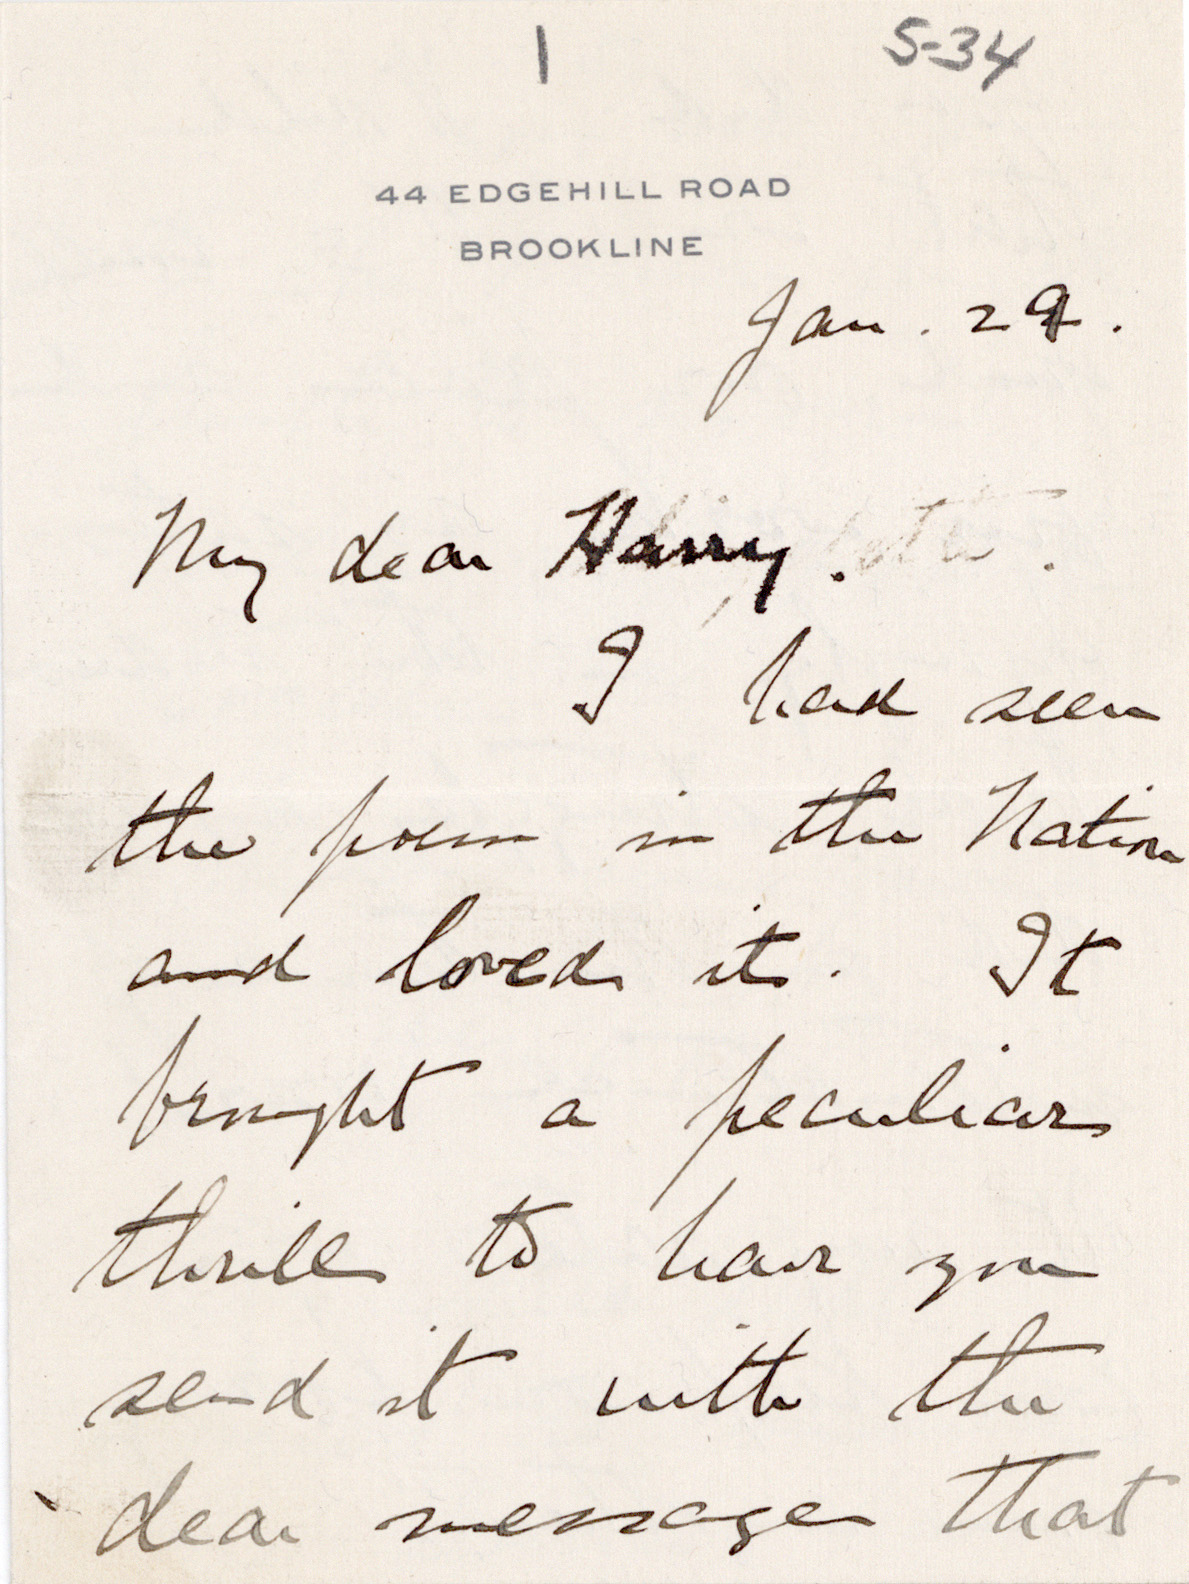 1 5-34
44 EDGEHILL ROAD
BROOKLINE
Jan. 29.
My dear Harry.
I had seen
the poem in the Nation
and loved it. It
brought a peculiar
thrill to have you
send it with the
dear message that